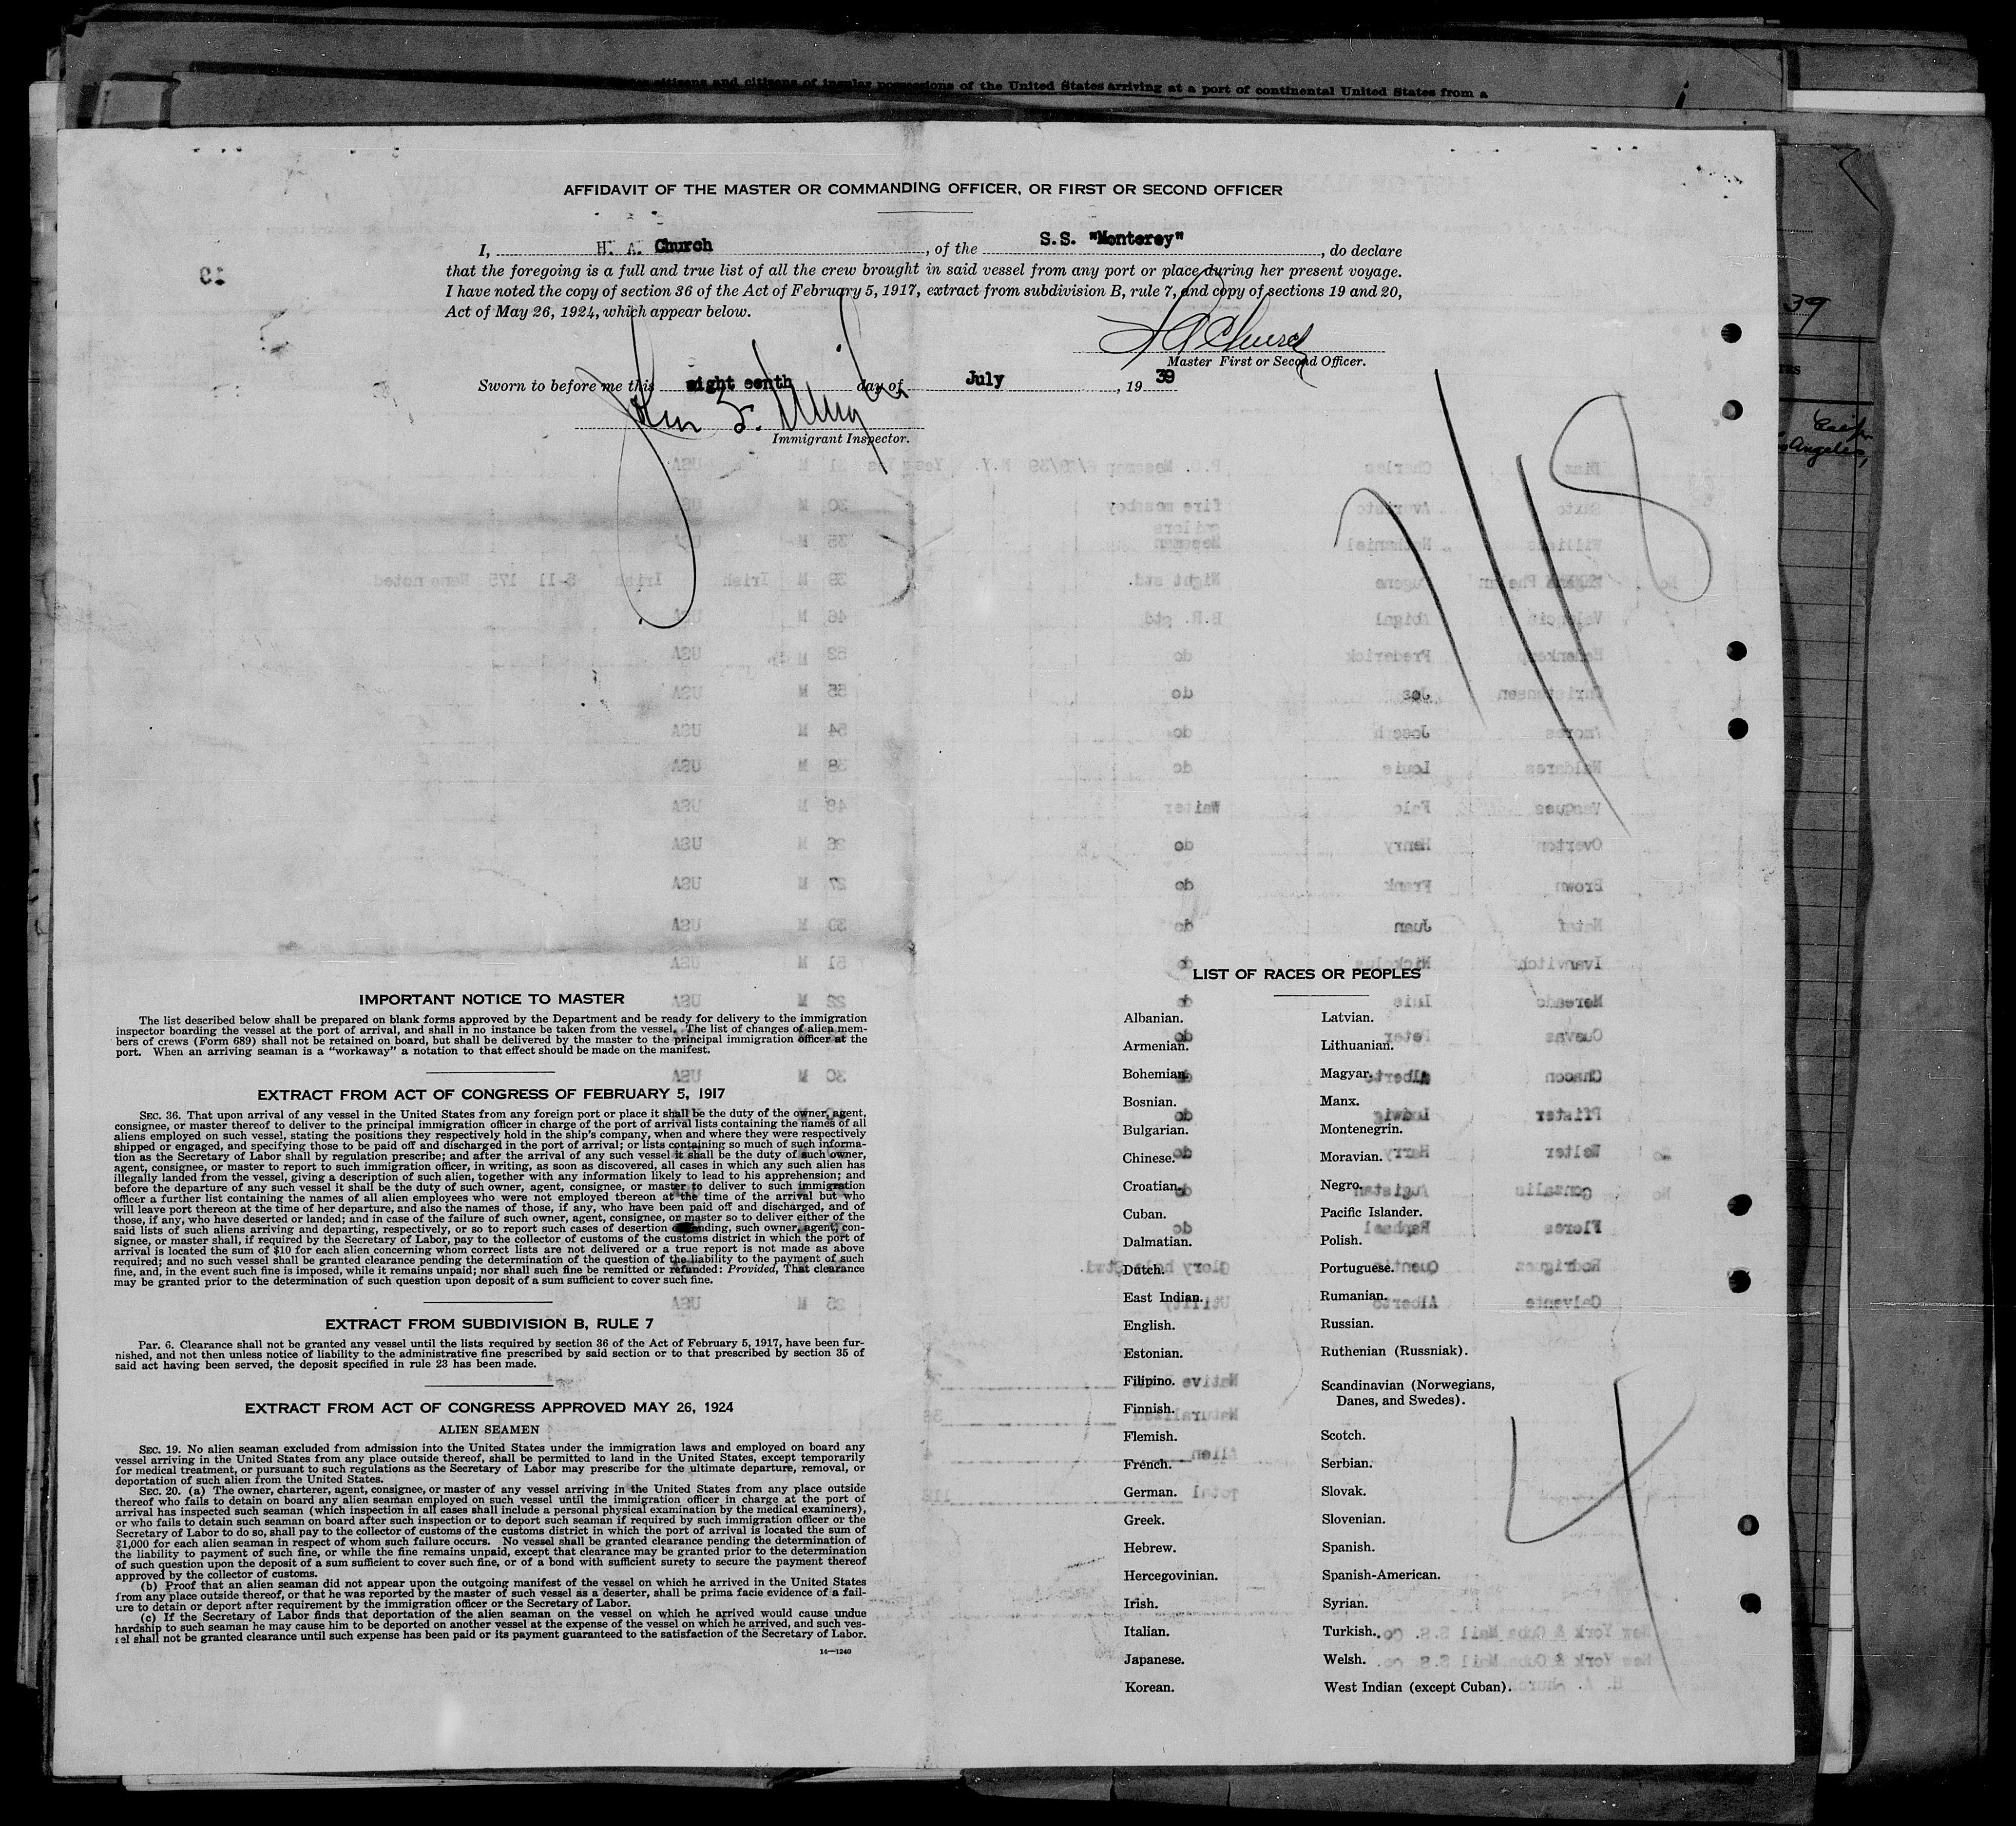 citizens and citizens of insular possessions of the United States arriving at a port of continental United States from a
AFFIDAVIT OF THE MASTER OR COMMANDING OFFICER, OR FIRST OR SECOND OFFICER
I, H. A. Church, of the S.S. "Monterey", do declare
that the foregoing is a full and true list of all the crew brought in said vessel from any port or place during her present voyage.
I have noted the copy of section 36 of the Act of February 5, 1917, extract from subdivision B, rule 7, and copy of sections 19 and 20,
Act of May 26, 1924, which appear below.
H A Church
Master First or Second Officer.
Sworn to before me this eight eenth day of July, 19 39
Immigrant Inspector.
39
Angeles,
118
IMPORTANT NOTICE TO MASTER
The list described below shall be prepared on blank forms approved by the Department and be ready for delivery to the immigration
inspector boarding the vessel at the port of arrival, and shall in no instance be taken from the vessel. The list of changes of alien mem-
bers of crews (Form 689) shall not be retained on board, but shall be delivered by the master to the principal immigration officer at the
port. When an arriving seaman is a "workaway" a notation to that effect should be made on the manifest.
EXTRACT FROM ACT OF CONGRESS OF FEBRUARY 5, 1917
SEC. 36. That upon arrival of any vessel in the United States from any foreign port or place it shall be the duty of the owner, agent,
consignee, or master thereof to deliver to the principal immigration officer in charge of the port of arrival lists containing the names of all
aliens employed on such vessel, stating the positions they respectively hold in the ship's company, when and where they were respectively
shipped or engaged, and specifying those to be paid off and discharged in the port of arrival; or lists containing so much of such informa-
tion as the Secretary of Labor shall by regulation prescribe; and after the arrival of any such vessel it shall be the duty of such owner,
agent, consignee, or master to report to such immigration officer, in writing, as soon as discovered, all cases in which any such alien has
illegally landed from the vessel, giving a description of such alien, together with any information likely to lead to his apprehension; and
before the departure of any such vessel it shall be the duty of such owner, agent, consignee, or master to deliver to such immigration
officer a further list containing the names of all alien employees who were not employed thereon at the time of the arrival but who
will leave port thereon at the time of her departure, and also the names of those, if any, who have been paid off and discharged, and of
those, if any, who have deserted or landed; and in case of the failure of such owner, agent, consignee, or master so to deliver either of the
said lists of such aliens arriving and departing, respectively, or so to report such cases of desertion or landing, such owner, agent, con-
signee, or master shall, if required by the Secretary of Labor, pay to the collector of customs of the customs district in which the port of
arrival is located the sum of $10 for each alien concerning whom correct lists are not delivered or a true report is not made as above
required; and no such vessel shall be granted clearance pending the determination of the question of the liability to the payment of such
fine, and, in the event such fine is imposed, while it remains unpaid; nor shall such fine be remitted or refunded: Provided, That clearance
may be granted prior to the determination of such question upon deposit of a sum sufficient to cover such fine.
EXTRACT FROM SUBDIVISION B, RULE 7
Par. 6. Clearance shall not be granted any vessel until the lists required by section 36 of the Act of February 5, 1917, have been fur-
nished, and not then unless notice of liability to the administrative fine prescribed by said section or to that prescribed by section 35 of
said act having been served, the deposit specified in rule 23 has been made.
EXTRACT FROM ACT OF CONGRESS APPROVED MAY 26, 1924
ALIEN SEAMEN
SEC. 19. No alien seaman excluded from admission into the United States under the immigration laws and employed on board any
vessel arriving in the United States from any place outside thereof, shall be permitted to land in the United States, except temporarily
for medical treatment, or pursuant to such regulations as the Secretary of Labor may prescribe for the ultimate departure, removal, or
deportation of such alien from the United States.
SEC. 20. (a) The owner, charterer, agent, consignee, or master of any vessel arriving in the United States from any place outside
thereof who fails to detain on board any alien seaman employed on such vessel until the immigration officer in charge at the port of
arrival has inspected such seaman (which inspection in all cases shall include a personal physical examination by the medical examiners),
or who fails to detain such seaman on board after such inspection or to deport such seaman if required by such immigration officer or the
Secretary of Labor to do so, shall pay to the collector of customs of the customs district in which the port of arrival is located the sum of
$1,000 for each alien seaman in respect of whom such failure occurs. No vessel shall be granted clearance pending the determination of
the liability to payment of such fine, or while the fine remains unpaid, except that clearance may be granted prior to the determination
of such question upon the deposit of a sum sufficient to cover such fine, or of a bond with sufficient surety to secure the payment thereof
approved by the collector of customs.
(b) Proof that an alien seaman did not appear upon the outgoing manifest of the vessel on which he arrived in the United States
from any place outside thereof, or that he was reported by the master of such vessel as a deserter, shall be prima facie evidence of a fail-
ure to detain or deport after requirement by the immigration officer or the Secretary of Labor.
(c) If the Secretary of Labor finds that deportation of the alien seaman on the vessel on which he arrived would cause undue
hardship to such seaman he may cause him to be deported on another vessel at the expense of the vessel on which he arrived, and such ves-
sel shall not be granted clearance until such expense has been paid or its payment guaranteed to the satisfaction of the Secretary of Labor.
14—1240
LIST OF RACES OR PEOPLES
Albanian.
Armenian.
Bohemian.
Bosnian.
Bulgarian.
Chinese.
Croatian.
Cuban.
Dalmatian.
Dutch.
East Indian.
English.
Estonian.
Filipino.
Finnish.
Flemish.
French.
German.
Greek.
Hebrew.
Hercegovinian.
Irish.
Italian.
Japanese.
Korean.
Latvian.
Lithuanian.
Magyar.
Manx.
Montenegrin.
Moravian.
Negro.
Pacific Islander.
Polish.
Portuguese.
Rumanian.
Russian.
Ruthenian (Russniak).
Scandinavian (Norwegians,
Danes, and Swedes).
Scotch.
Serbian.
Slovak.
Slovenian.
Spanish.
Spanish-American.
Syrian.
Turkish.
Welsh.
West Indian (except Cuban).
4